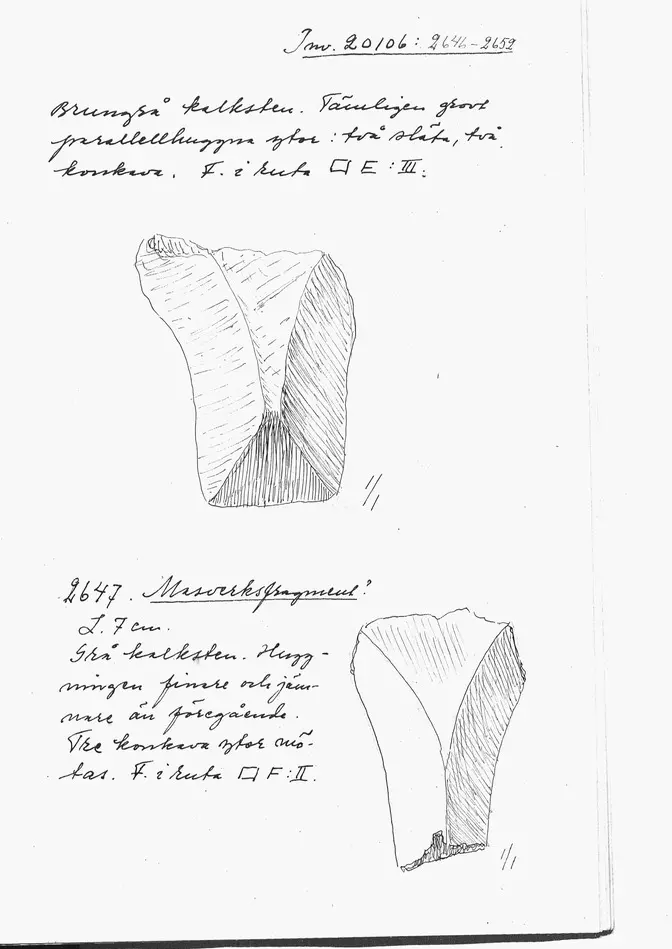 Inv. 20106: 2646-2652
Brungrå kalksten. Tämligen grovt
parallellhuggna ytor: två släta, två
konkava. F. i ruta □ E:III.
1/1
2647. Masverksfragment?
L. 7 cm.
Grå kalksten. Hugg-
ningen finare och jäm-
nare än föregående.
Tre konkava ytor mö-
tas. F. i ruta □ F:II.
1/1